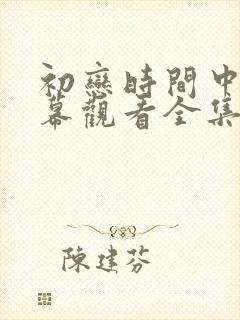 初戀時間中
幕觀看全集
陳建芬